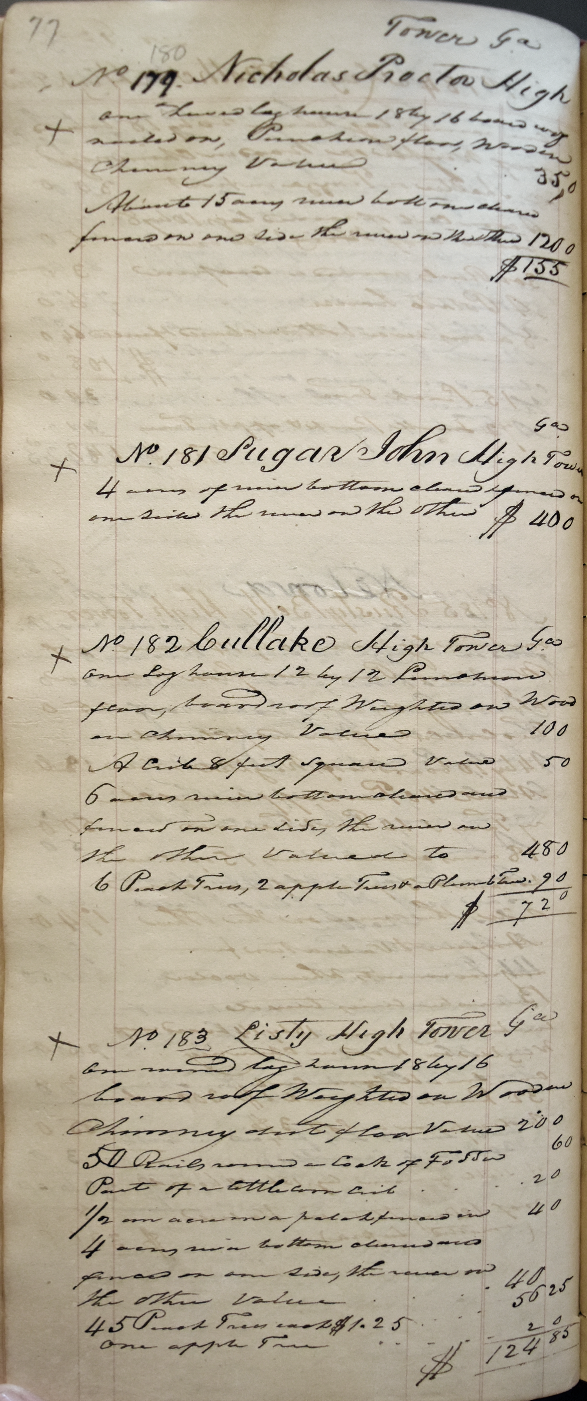 77
Tower Ga
180
No 179. Nicholas Proctor High
one hewed log house 18 by 16 board roof
nailed on, Puncheon floor, Wooden
Chimney Value 35 0
About 15 acres river bottom cleared
fenced on one side the river on the other 120 0
$155
Ga
+ No. 181 Sugar John High Tower
4 acres of river bottom cleared & fenced on
one side the river on the other $ 40 0
+ No 182 Cullake High Tower Ga
one Log house 12 by 12 Puncheon
floor, board roof Weighted on Wood
en Chimney Valued 10 0
A Crib 8 feet Square Value 5 0
6 acres river bottom cleared and
fenced on one side, the river on
the other Valued to 48 0
6 Peach Trees, 2 apple Trees & a Plumb Tree. 9 0
$ 72 0
+ No. 183 Listy High Tower Ga
one round log house 18 by 16
board roof Weighted on Wooden
Chimney dirt floor Value 20 0
50 Rails round a Cock of Fodder 60
Part of a little corn Crib 2 0
1/2 an acre in a patch fenced in 4 0
4 acres river bottom cleared and
fenced on one side, the river on
the other Value 40
45 Peach Trees each $1.25 56 25
one apple Tree 2 0
$ 124 85